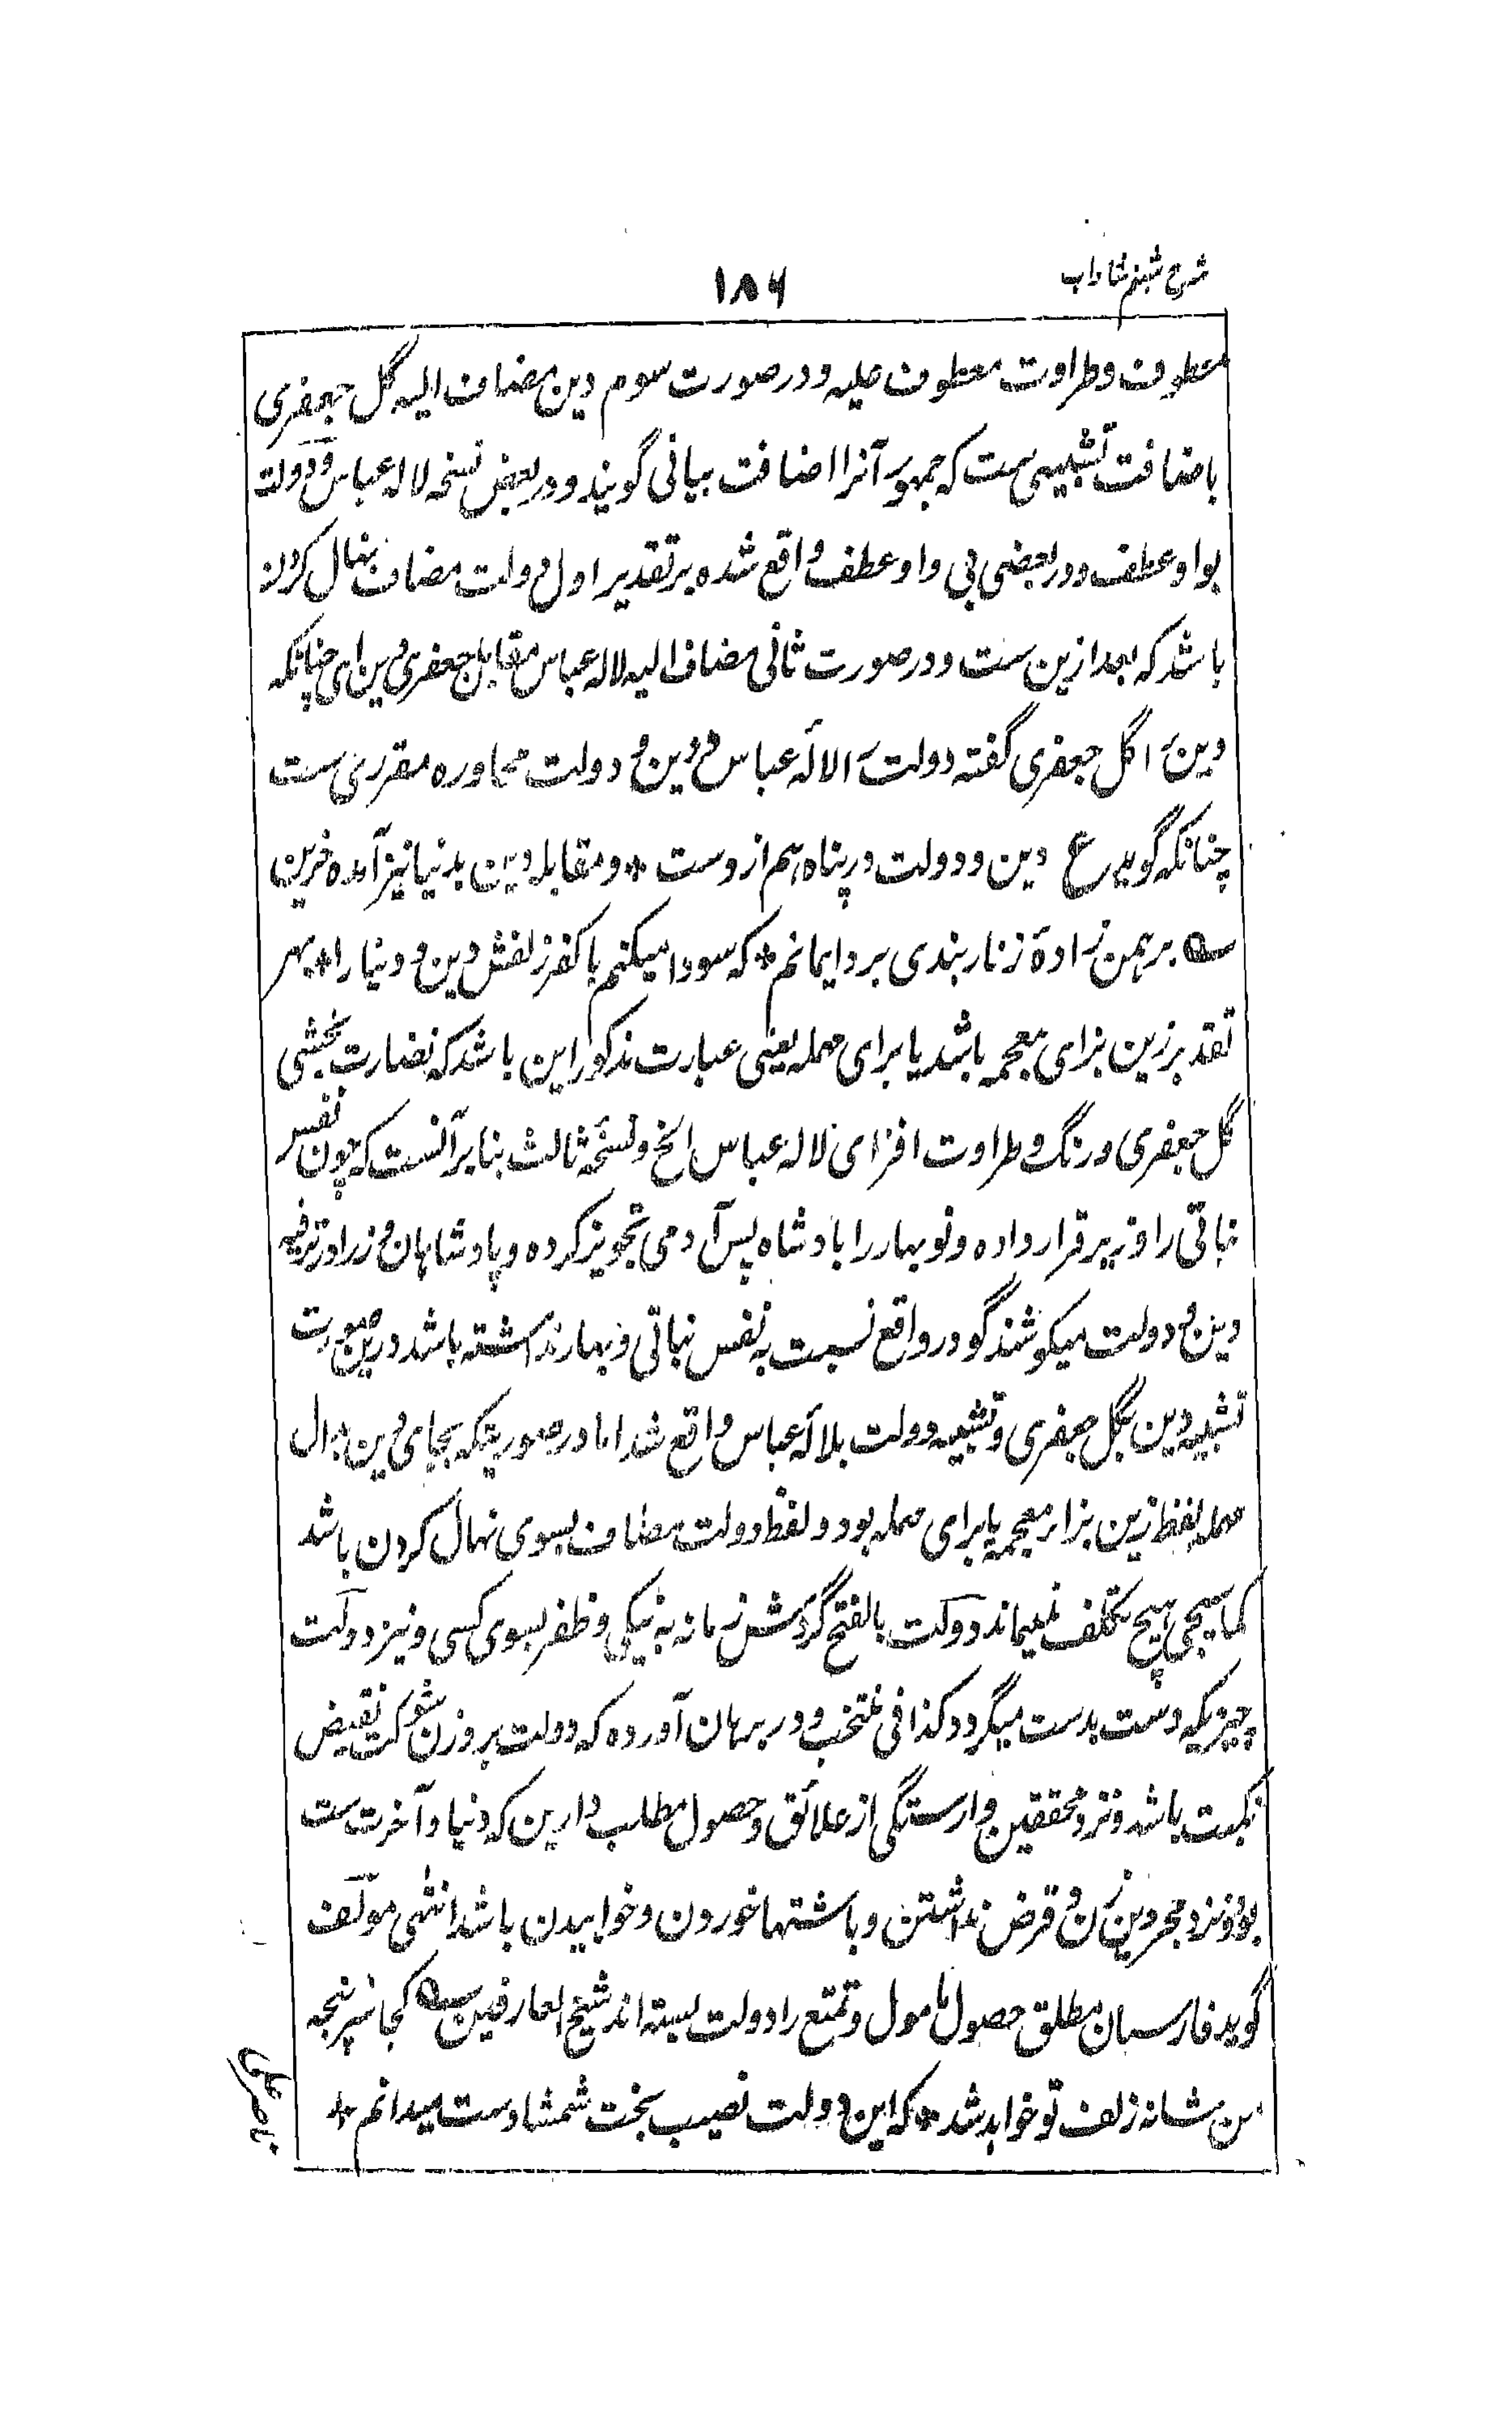 شرح شبنم شاداب
۱۸۶
معطوف وطراوت معطوف علیه ودرصورت سوم دین مضاف الیه گل جعفری
باضافت تشبیهی ست که جمهور آنرا اضافت بیانی گویند ودر بعض نسخه لاله عباس ودولت
بواو عطف ودر بعضی بی واو عطف واقع شده بر تقدیر اول دولت مضاف بنهال کردن
باشد که بعد ازین ست ودرصورت ثانی مضاف الیه لاله عباس مقابل جعفری دین ای چنانکه
دین را گل جعفری گفته دولت را لاله عباس ودین و دولت محاوره مقرری ست
چنانکه گوید ع دین ودولت در پناه هم ازوست * ومقابله دین بدنیا نیز آمده حزین
ــه برهمن زادهٔ زنار بندی برد ایمانم * که سودا میکنم با کفر زلفش دین و دنیا را * بهر
تقدیر زین بزای معجمه باشد یا برای مهمله یعنی عبارت مذکور این باشد که نضارت بخشی
گل جعفری ورنگ وطراوت افزای لاله عباس الخ ونسخه ثالث بنابر آنست که چون نفس
نباتی را وزیر قرار داده ونوبهار را بادشاه پس آدمی تجویز کرده وپادشاهان وزرا در ترفیه
دین و دولت میکوشند گو در واقع نسبت به نفس نباتی وبهار نداشته باشد درین صورت
تشبیه دین بگل جعفری وتشبیه دولت بلاله عباس واقع شد اما در صورتیکه بجای دین بدال
مهمله لفظ زین بزا معجمه یا برای مهمله بود ولفظ دولت مضاف بسوی نهال کردن باشد
کما سیجی هیچ تکلف نمیماند دولت بالفتح گردش زمانه به نیکی وظفر بسوی کسی ونیز دولت
چیزیکه دست بدست میگردد کذا فی منتخب ودر برهان آورده که دولت بروزن شوکت نقیض
نکبت باشد ونزد محققین وارستگی از علائق وحصول مطلب دارین که دنیا وآخرت ست
بود ونزد مجردین زن و قرض نداشتن وباشتها خوردن وخوابیدن باشد انتهی مولف
گوید فارسیان مطلق حصول مامول وتمتع را دولت بسته اند شیخ العارفین ــه کجا سرپنجه
من شانه زلف تو خواهد شد * که این دولت نصیب بخت شمشادست میدانم *
ناصر علی